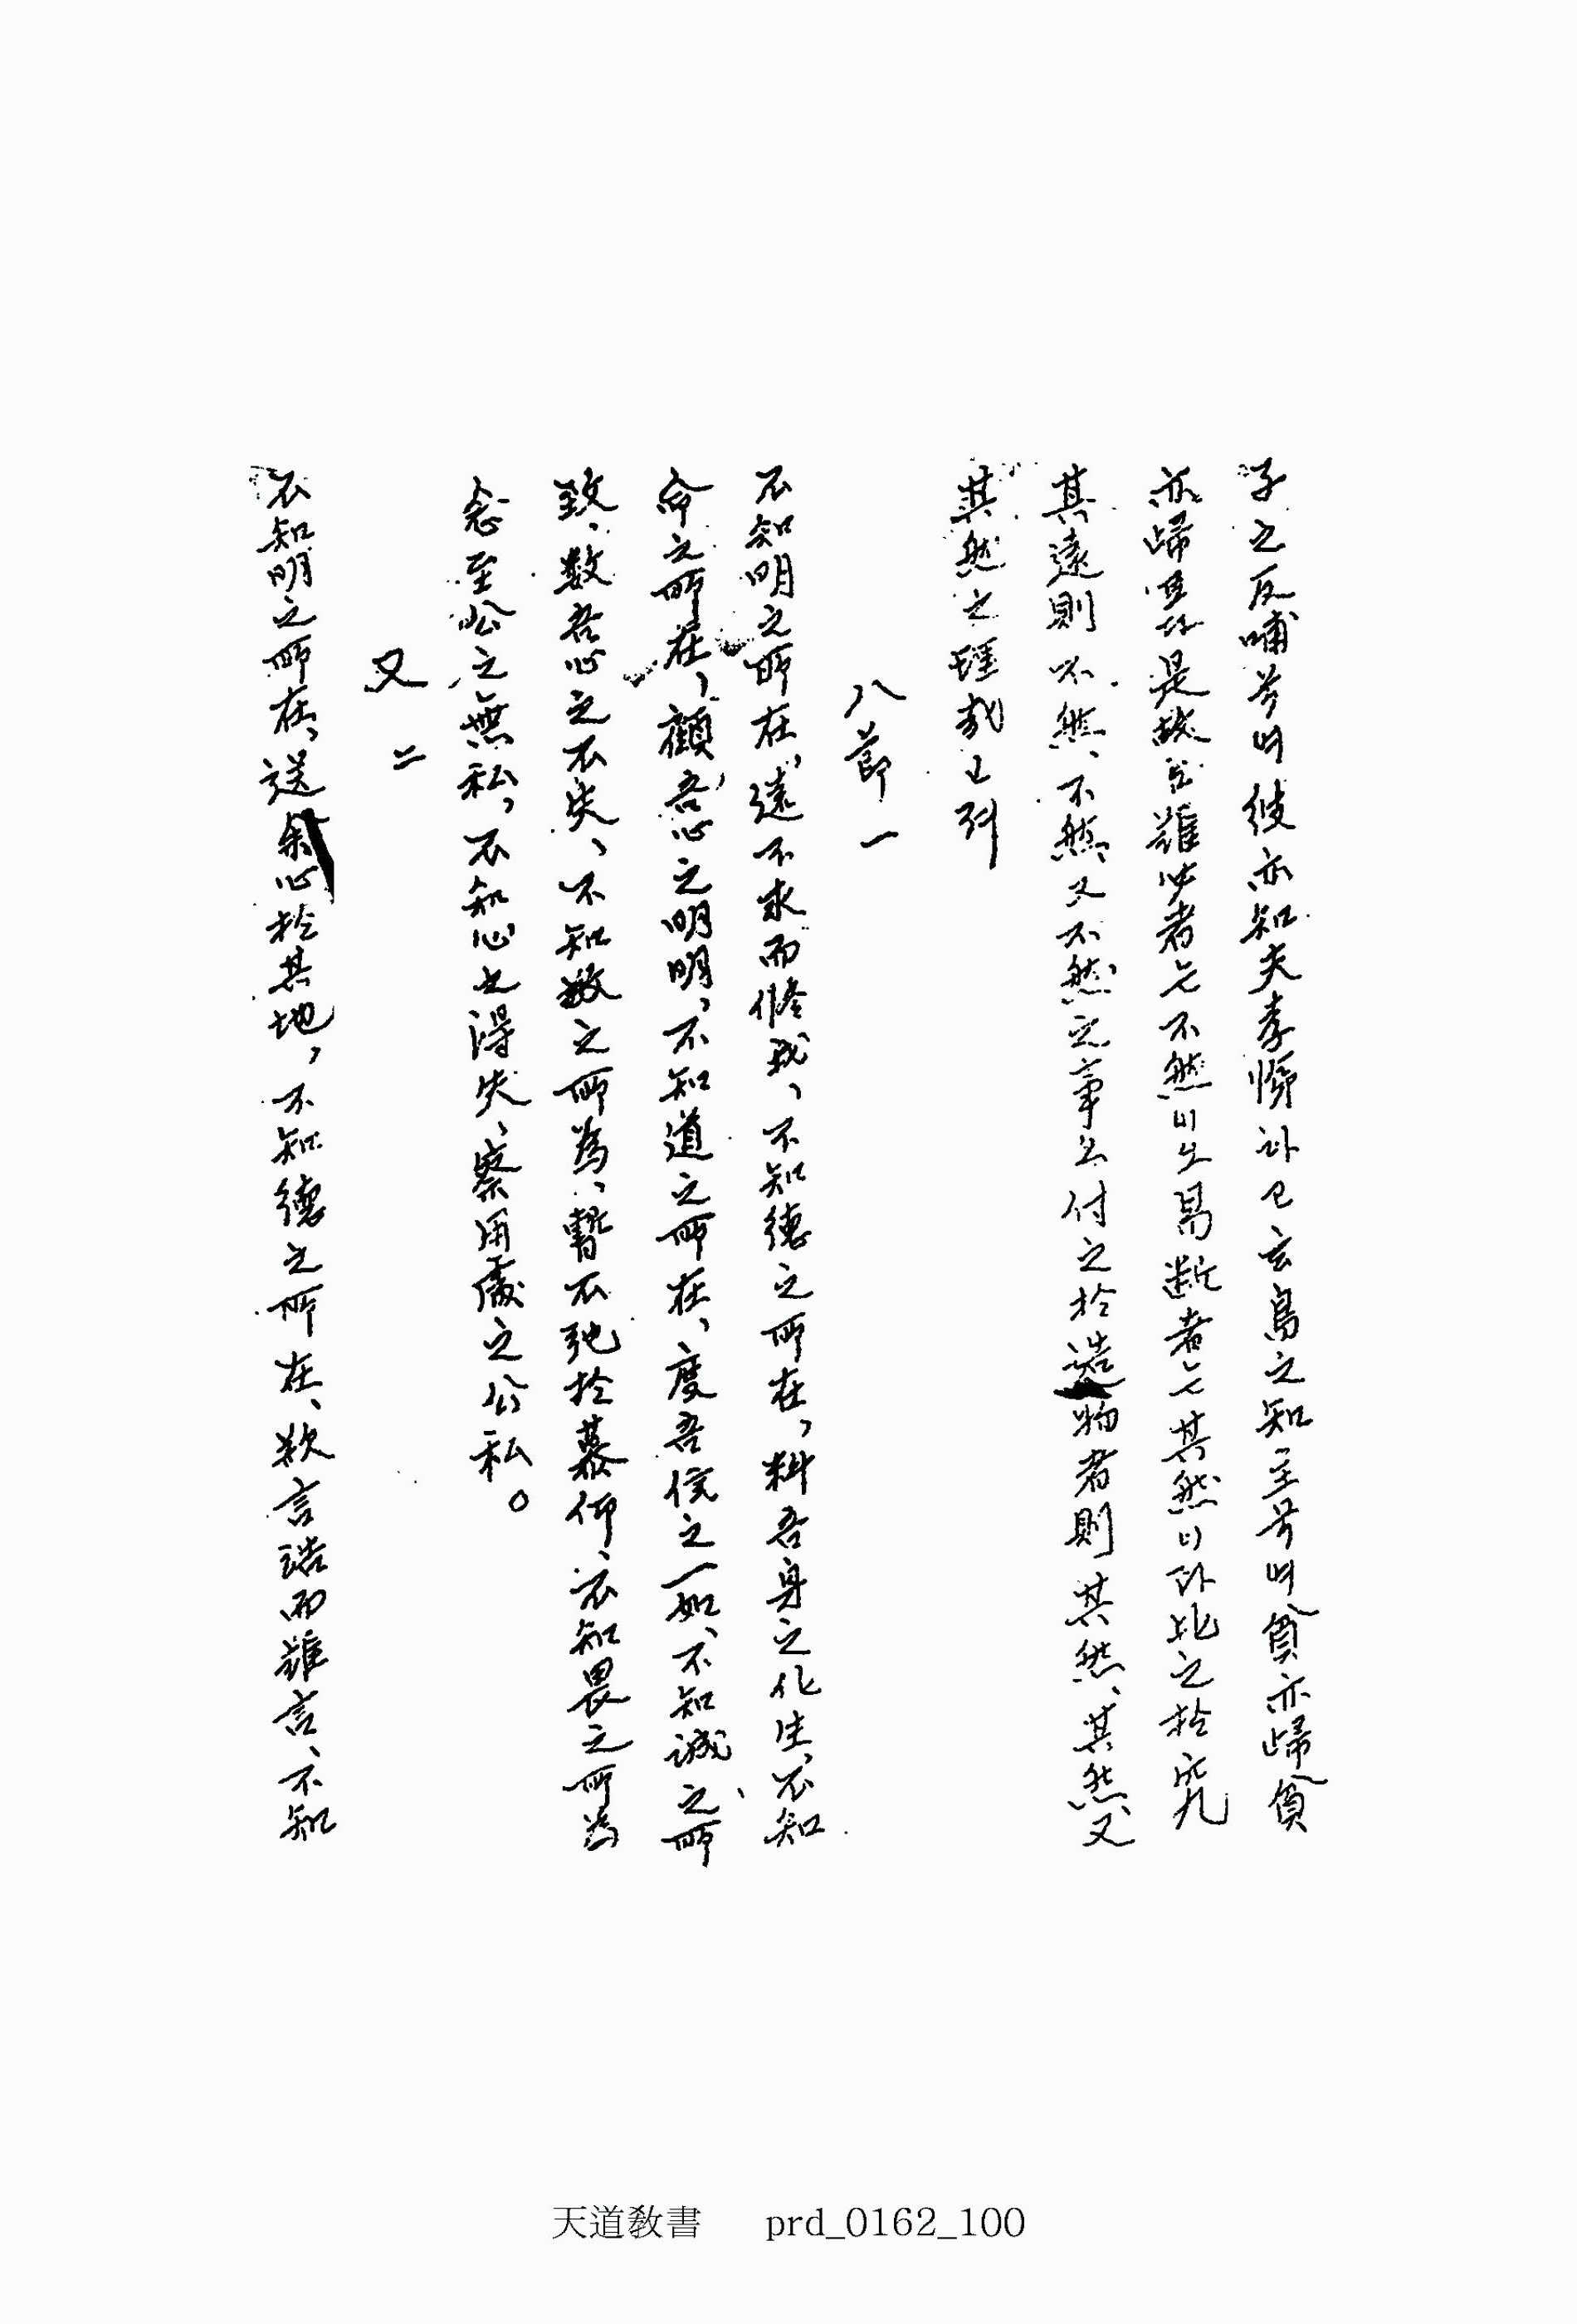 子之反哺兮여 彼亦知夫孝悌 玄鳥之知主兮여 貧亦歸貧
亦歸 是故로 難必者는 不然이오 易斷者는 其然이라 比之於究
其遠則不然、不然、又不然之事오 付之於造物者則 其然、其然、又
其然之理哉
八節 一
不知明之所在,遠不求而修我、不知德之所在,料吾身之化生、不知
命之所在,顧吾心之明明,不知道之所在,度吾信之一如、不知誠之所
致、数吾心之不失、不知敬之所為、暫不弛於慕仰、不知畏之所為
念至公之無私,不知心之得失、察用處之公私。
又 二
不知明之所在,送余心於其地,不知德之所在、欲言浩而難言、不知
天道敎書 prd_0162_100